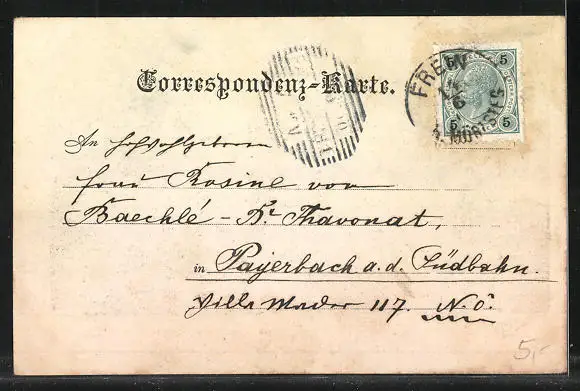 Correspondenz-Karte.
5 5
5 5
FREIN
An Hochwohlgeboren
Frau Rosine von
Baechlé - Br Thavonat,
in Payerbach a. d. Südbahn.
Villa Mader 117. N. Ö.
5,-